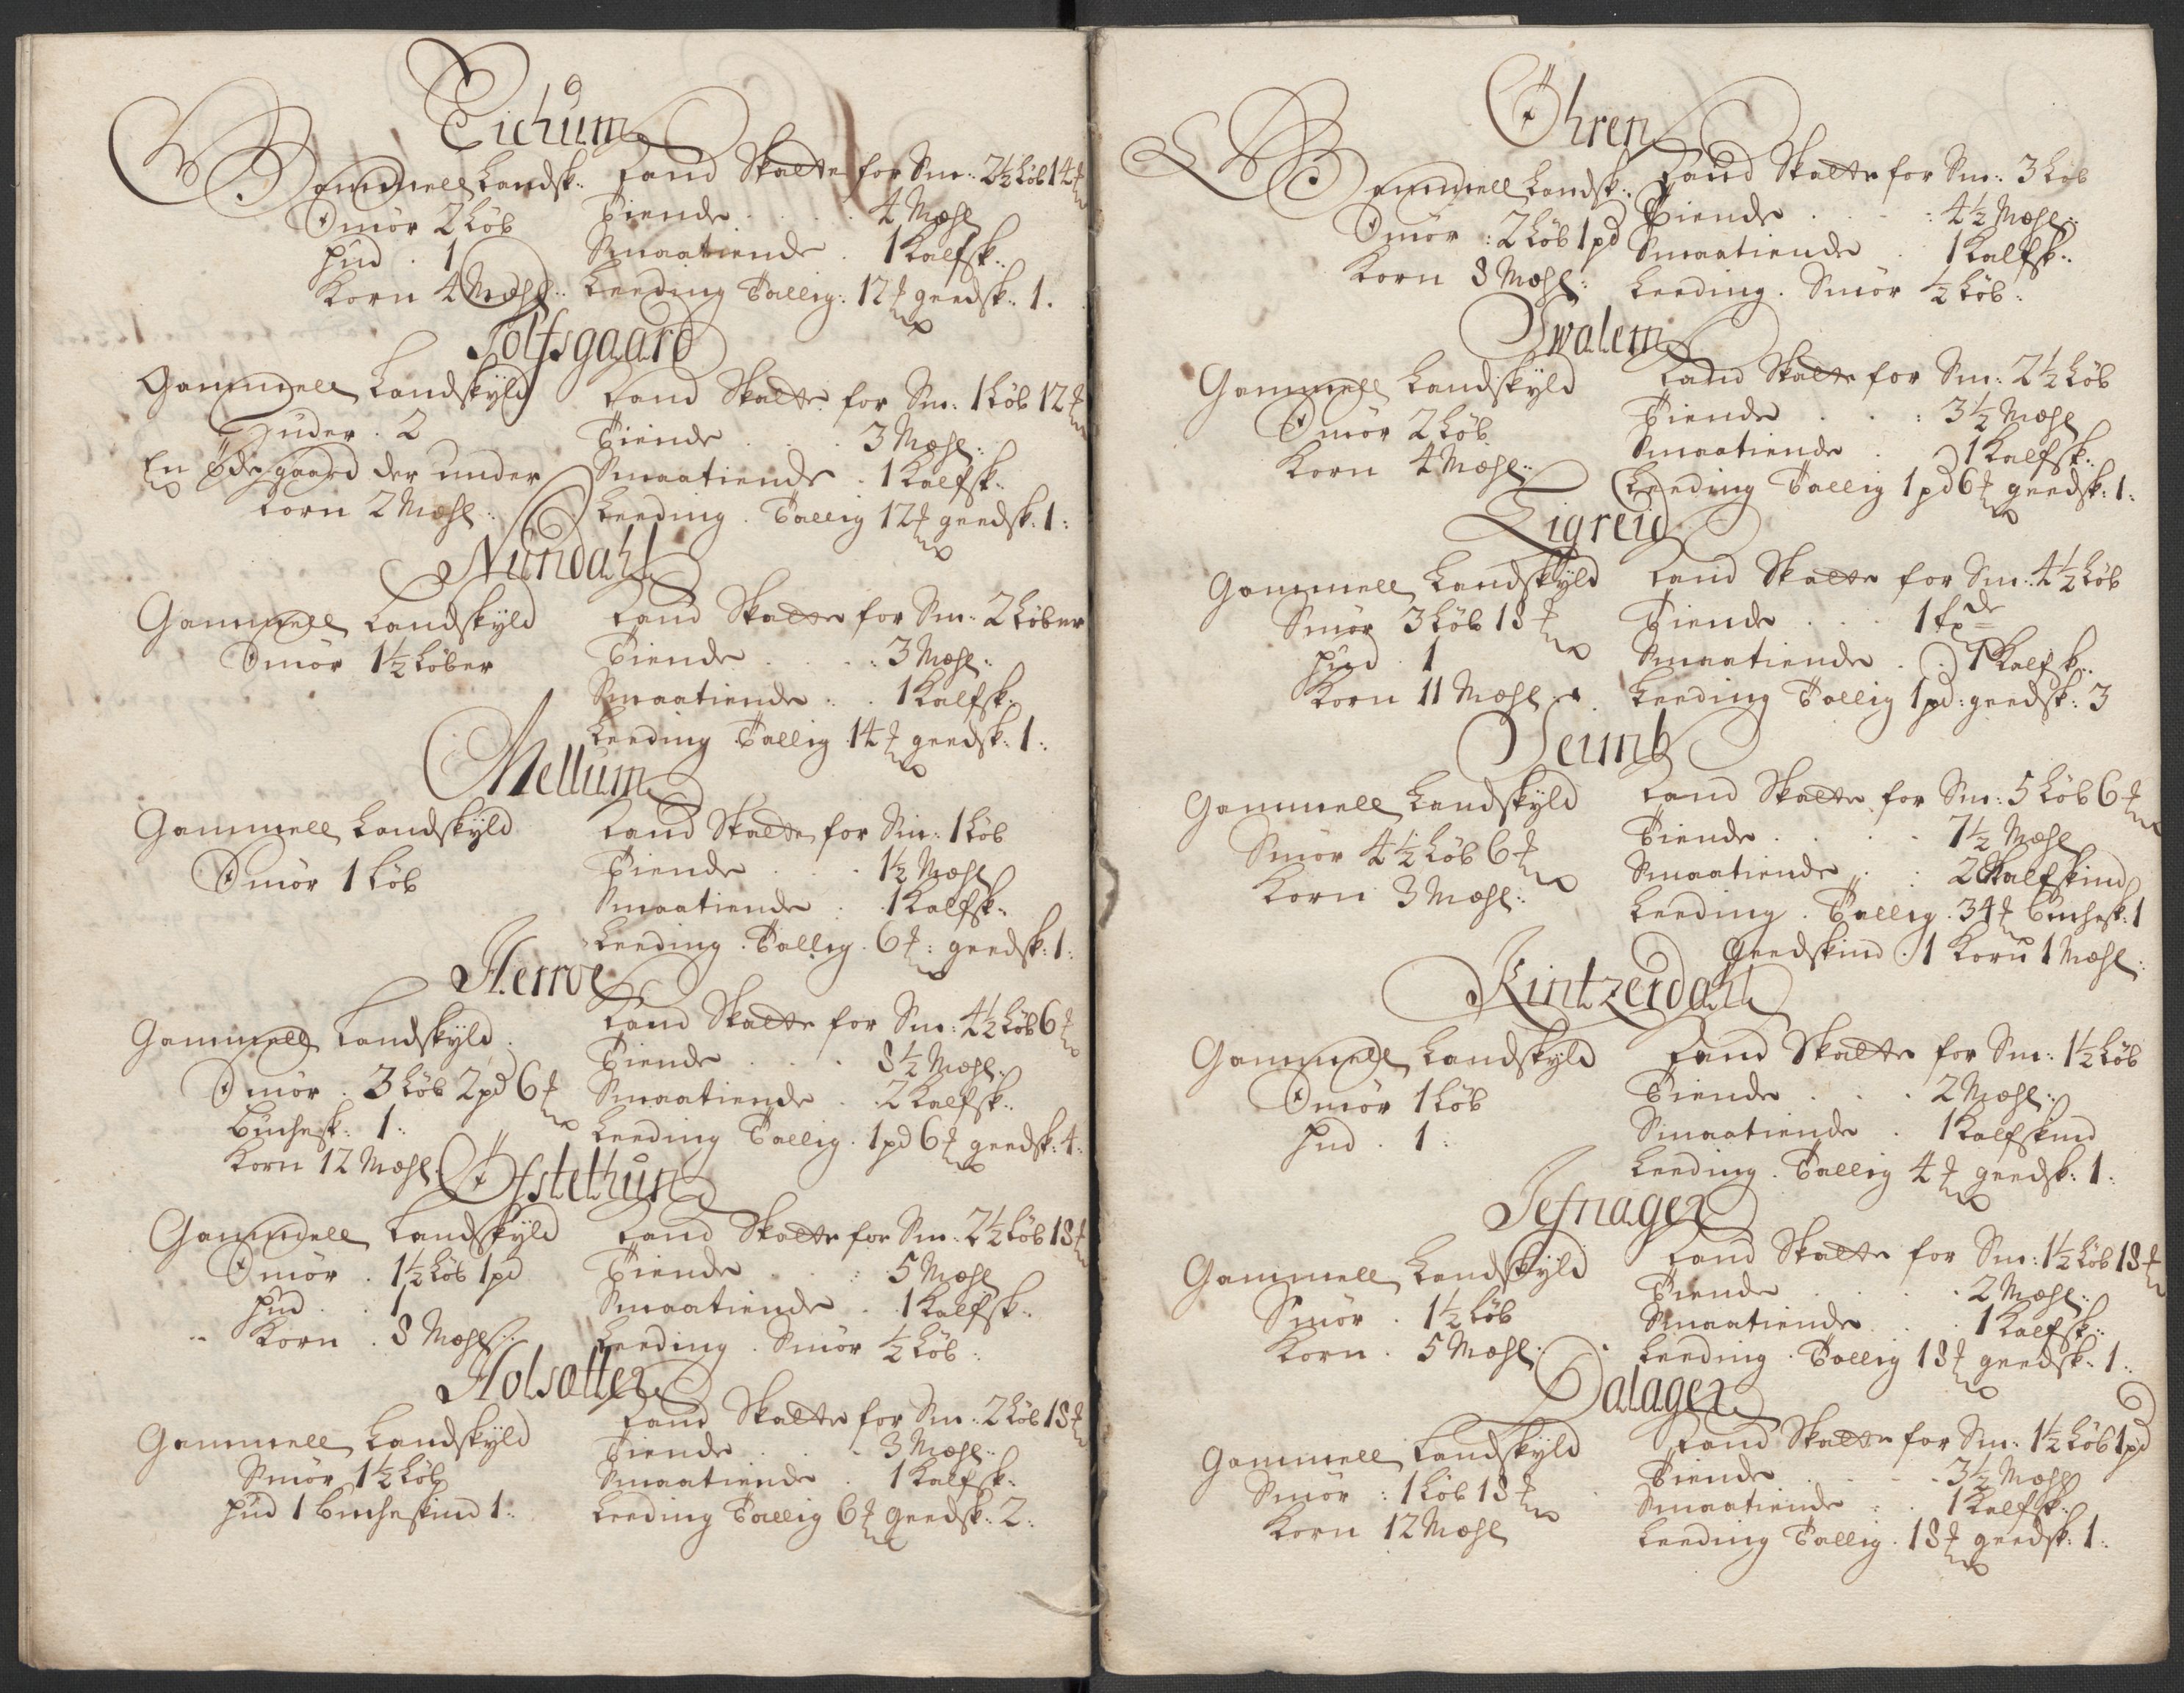 Eichum
Gammell Landsk:
Smör 2 Løb
Hud . 1
Korn 4 Mæhl:
Land Skatte for Sm: 2½ Løb 14 ℔
Tiende . . . 4 Mæhl
Smaatiende . 1 Kalfsk:
Leeding Tallig: 12 ℔ geedsk: 1.
Tolfsgaard
Gammell Landskyld
Huder . 2
En Ødegaard der under
Korn 2 Mæhl:
Land Skatte for Sm: 1 Løb 12 ℔
Tiende . . . 3 Mæhl:
Smaatiende . 1 Kalfsk:
Leeding . Tallig 12 ℔ geedsk: 1:
Nundahl
Gammell Landskyld
Smör 1½ Løber
Land Skatte for Sm: 2 Løber
Tiende . . . 3 Mæhl:
Smaatiende . . 1 Kalfsk:
Leeding Tallig 14 ℔ geedsk: 1:
Mellum
Gammell Landskyld
Smör 1 Løb
Land Skatte for Sm: 1 Løb
Tiende . . . 1½ Mæhl
Smaatiende . 1 Kalfsk:
Leeding . Tallig . 6 ℔: geedsk: 1:
Herroe
Gammell Landskyld
Smör . 3 Løb 2 pd 6 ℔
Buchesk: 1:
Korn 12 Mæhl:
Land Skatte for Sm: 4½ Løb 6 ℔
Tiende . . . 8½ Mæhl:
Smaatiende . . 2 Kalfsk:
Leeding Tallig . 1 pd 6 ℔ geedsk: 4:
Öfstethun
Gammell Landskyld
Smör . 1½ Løb 1 pd
Hud . . 1
Korn . 8 Mæhl:
Land Skatte for Sm: 2½ Løb 18 ℔
Tiende . . . 5 Mæhl
Smaatiende . . 1 Kalfsk:
Leeding . Smör ½ Løb:
Holsætter
Gammell Landskyld
Smör 1½ Løb
Hud 1 Bucheskind 1:
Land Skatte for Sm: 2 Løb 18 ℔
Tiende . . . 3 Mæhl:
Smaatiende . 1 Kalfsk:
Leeding Tallig 6 ℔ geedsk: 2:
Öhren
Gammell Landsk:
Smör : 2 Løb 1 pd
Korn 8 Mæhl:
Land Skatte for Sm: 3 Løb
Tiende . . . 4½ Mæhl:
Smaatiende . 1 Kalfsk:
Leeding . Smör ½ Løb:
Swalem
Gammell Landskyld
Smör 2 Løb
Korn 4 Mæhl:
Land Skatte for Sm: 2½ Løb
Tiende . . . 3½ Mæhl
Smaatiende . 1 Kalfsk:
Leeding Tallig 1 pd 6 ℔ geedsk: 1:
Eigreid
Gammell Landskyld
Smör 3 Løb 18 ℔
Hud . 1
Korn 11 Mæhl:
Land Skatte for Sm: 4½ Løb
Tiende . . . 1
Smaatiende . . 1 Kalfsk:
Leeding Tallig 1 pd: geedsk: 3
Seimb
Gammell Landskyld
Smör 4½ Løb 6 ℔
Korn 3 Mæhl:
Land Skatte for Sm: 5 Løb 6 ℔
Tiende . . . 7½ Mæhl
Smaatiende . : 2 Kalfskind
Leeding . Tallig . 34 ℔ Buchesk: 1
Geedskind . 1 Korn 1 Mæhl:
Kintzerdahl
Gammell Landskyld
Smör 1 Løb
Hud . 1:
Land Skatte for Sm: 1½ Løb
Tiende . . . 2 Mæhl:
Smaatiende . 1 Kalfskind
Leeding . Tallig 4 ℔ geedsk: 1:
Jefnager
Gammell Landskyld
Smör . 1½ Løb
Korn . 5 Mæhl:
Land Skatte for Sm: 1½ Løb 18 ℔
Tiende . . . 2 Mæhl:
Smaatiende . . 1 Kalfsk:
Leeding . Tallig 18 ℔ geedsk: 1:
Dalager
Gammell Landskyld
Smör : 1 Løb 18 ℔
Korn 12 Mæhl
Land Skatte for Sm: 1½ Løb 1 pd
Tiende . . . 3½ Mæhl
Smaatiende : . 1 Kalfsk:
Leeding Tallig . 18 ℔ geedsk: 1: